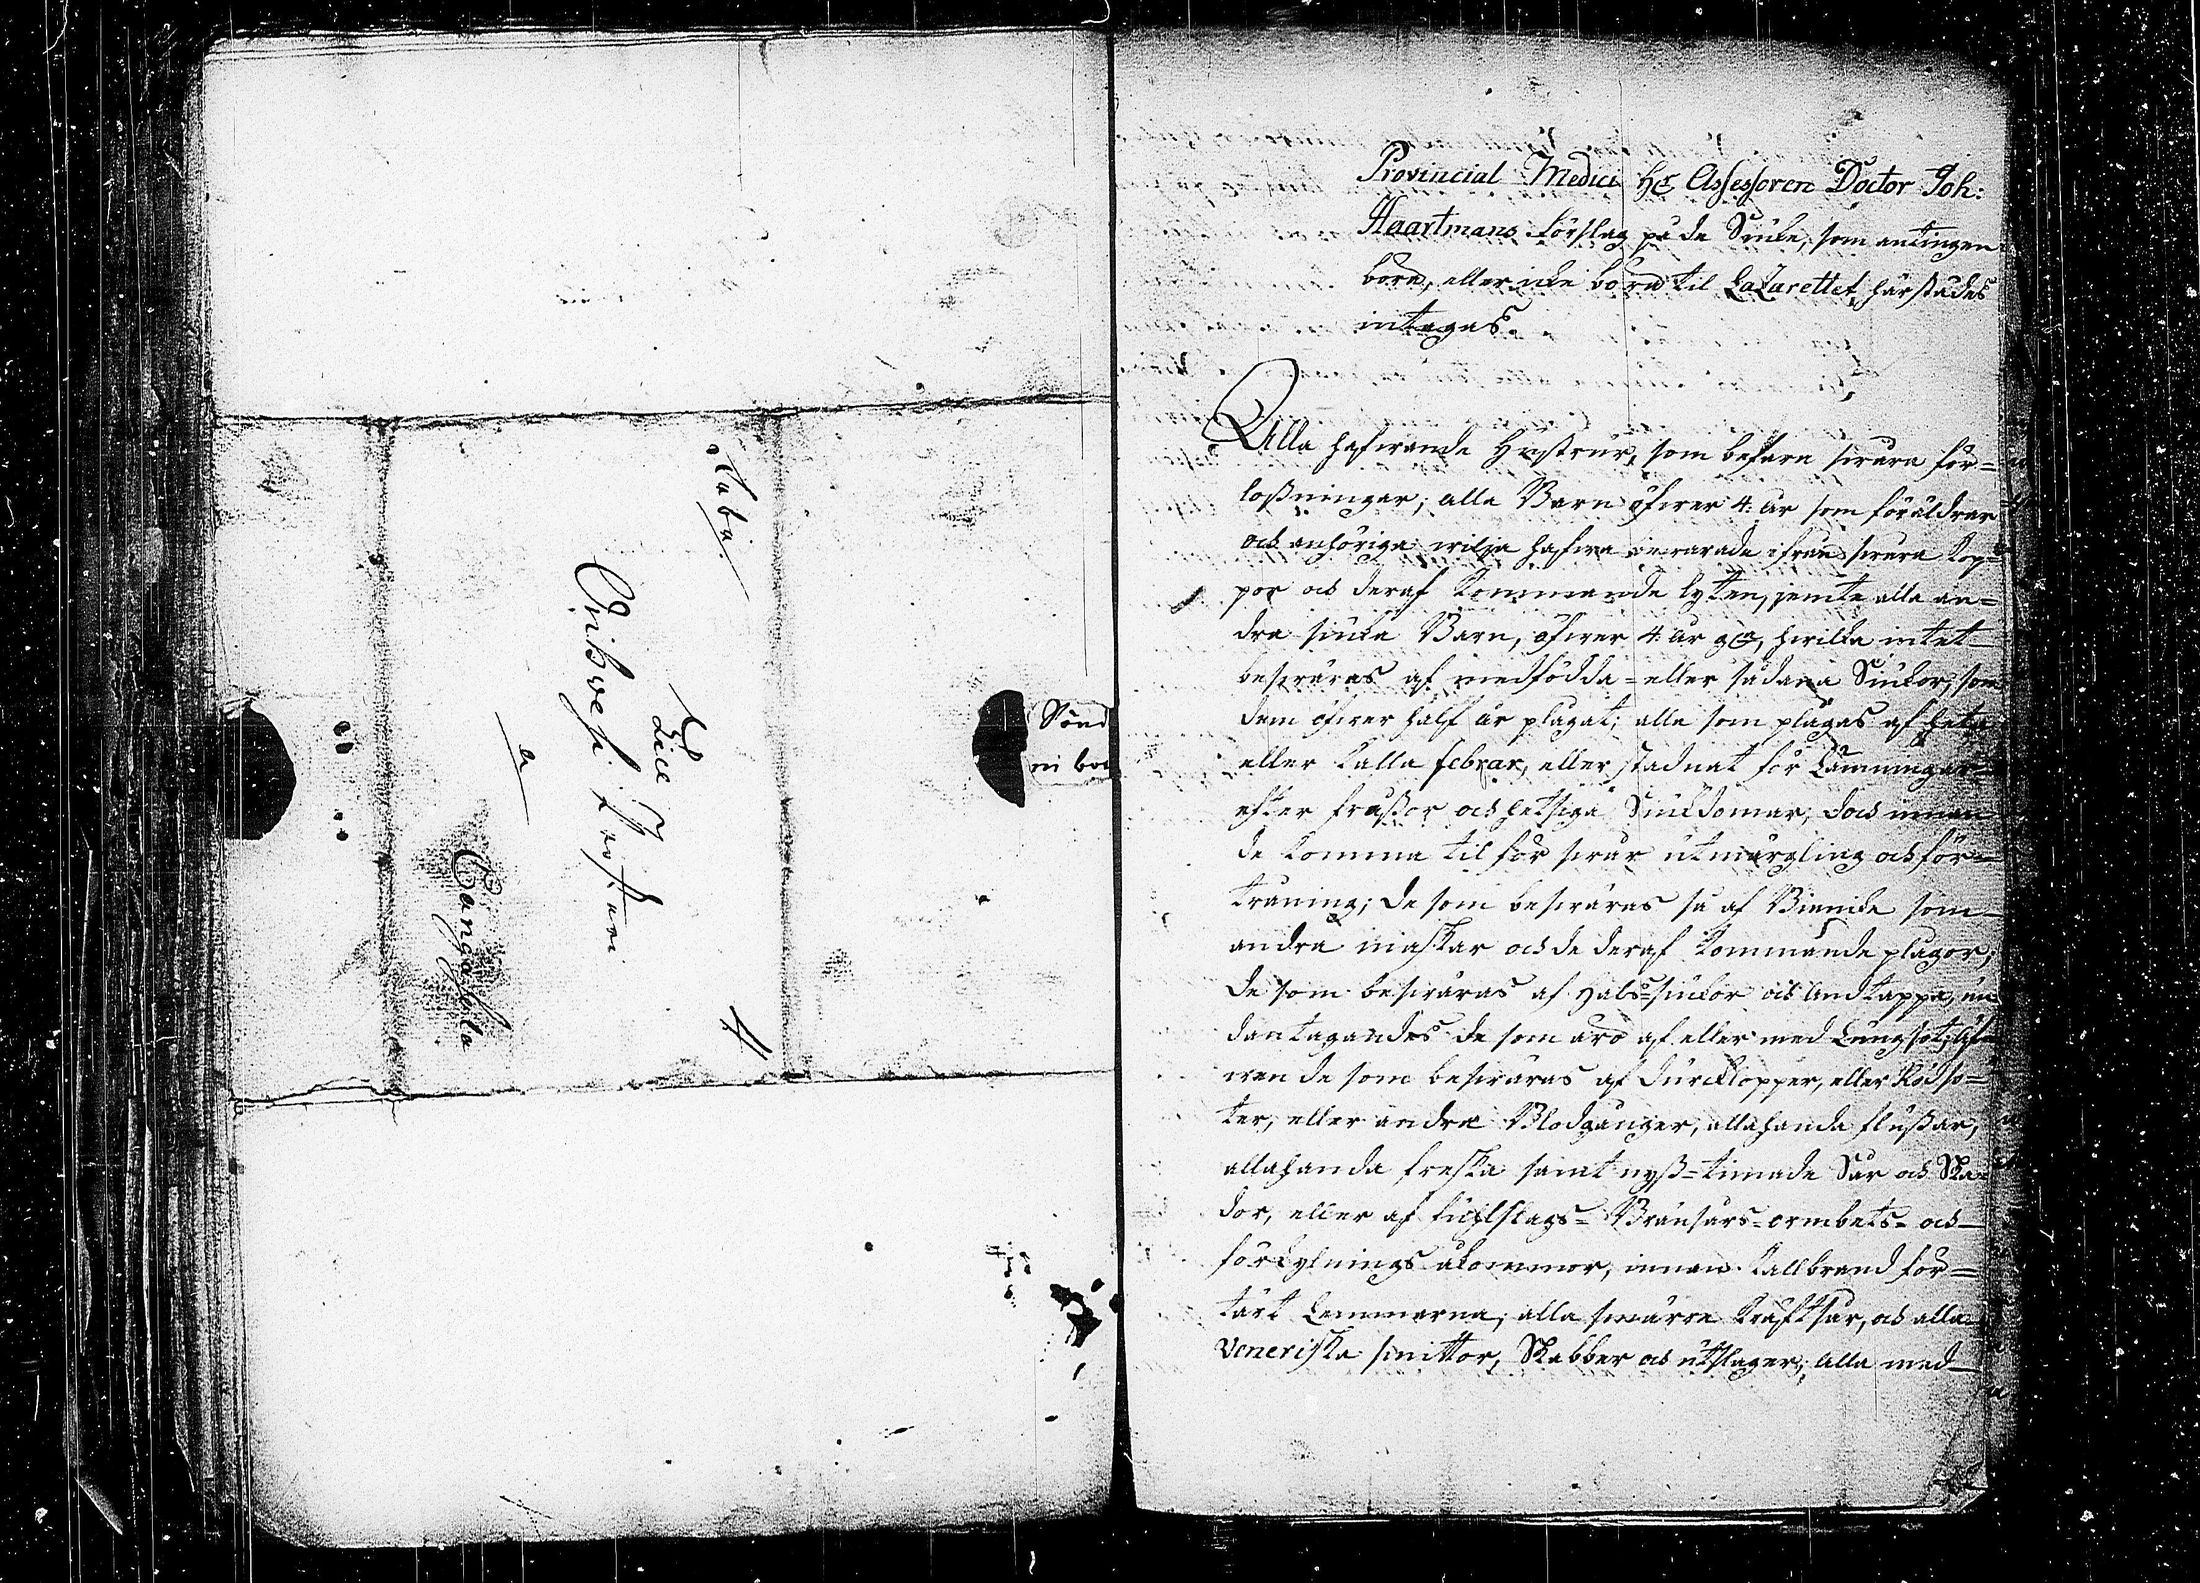 Åbo
Til
Ehrwördige Prosten
a
Cangasala
Sönd
ni boc
Provincial Medici Hr Assessoren Doctor Joh:
Haartmans förslag på de Siuke, som antingen
böra, eller icke böra til Lazarettet härstädes
intagas.
Alla hafwande Hustrur, som befara swåra för=
loßningar; alla Barn öfwer 4. år som föräldrar
och anhörige wilja hafwa bewarade ifrån swåra Kop=
por och deraf kommande lyten, jemte alla an=
dra siuka Barn, öfwer 4. år gl, hwilka intet
beswäras af medfödda= eller sådana Siukor, som
dem öfwer half år plågat; alla som plågas af heta
eller kalla febrar, eller stadnat för Lämningar
efter fraßor och hetsiga Siukdomar, doch innan
de komma til för swår utmärgling och för=
tråning; De som beswäras så af Binnike som
andra maskar och de deraf kommande plågor,
de som beswäras af Hals=siukor och andtäppa, un
dantagandes de som äro af eller med Lungsot; Äf=
wen de som beswäras af Durchlopper, eller Rödso=
ter, eller andra Blodgånger, allahanda flußar,
allahanda freska samt nyß=timade Sår och Ska=
dor, eller af fichlslags= Brånsårs= ormbets= och
förkylnings åkommor, innan kallbrand för=
tärt Lemmarna; alla smärre kräftsår, och alla
Veneriska smittor, Skabber och utslager; Alla med